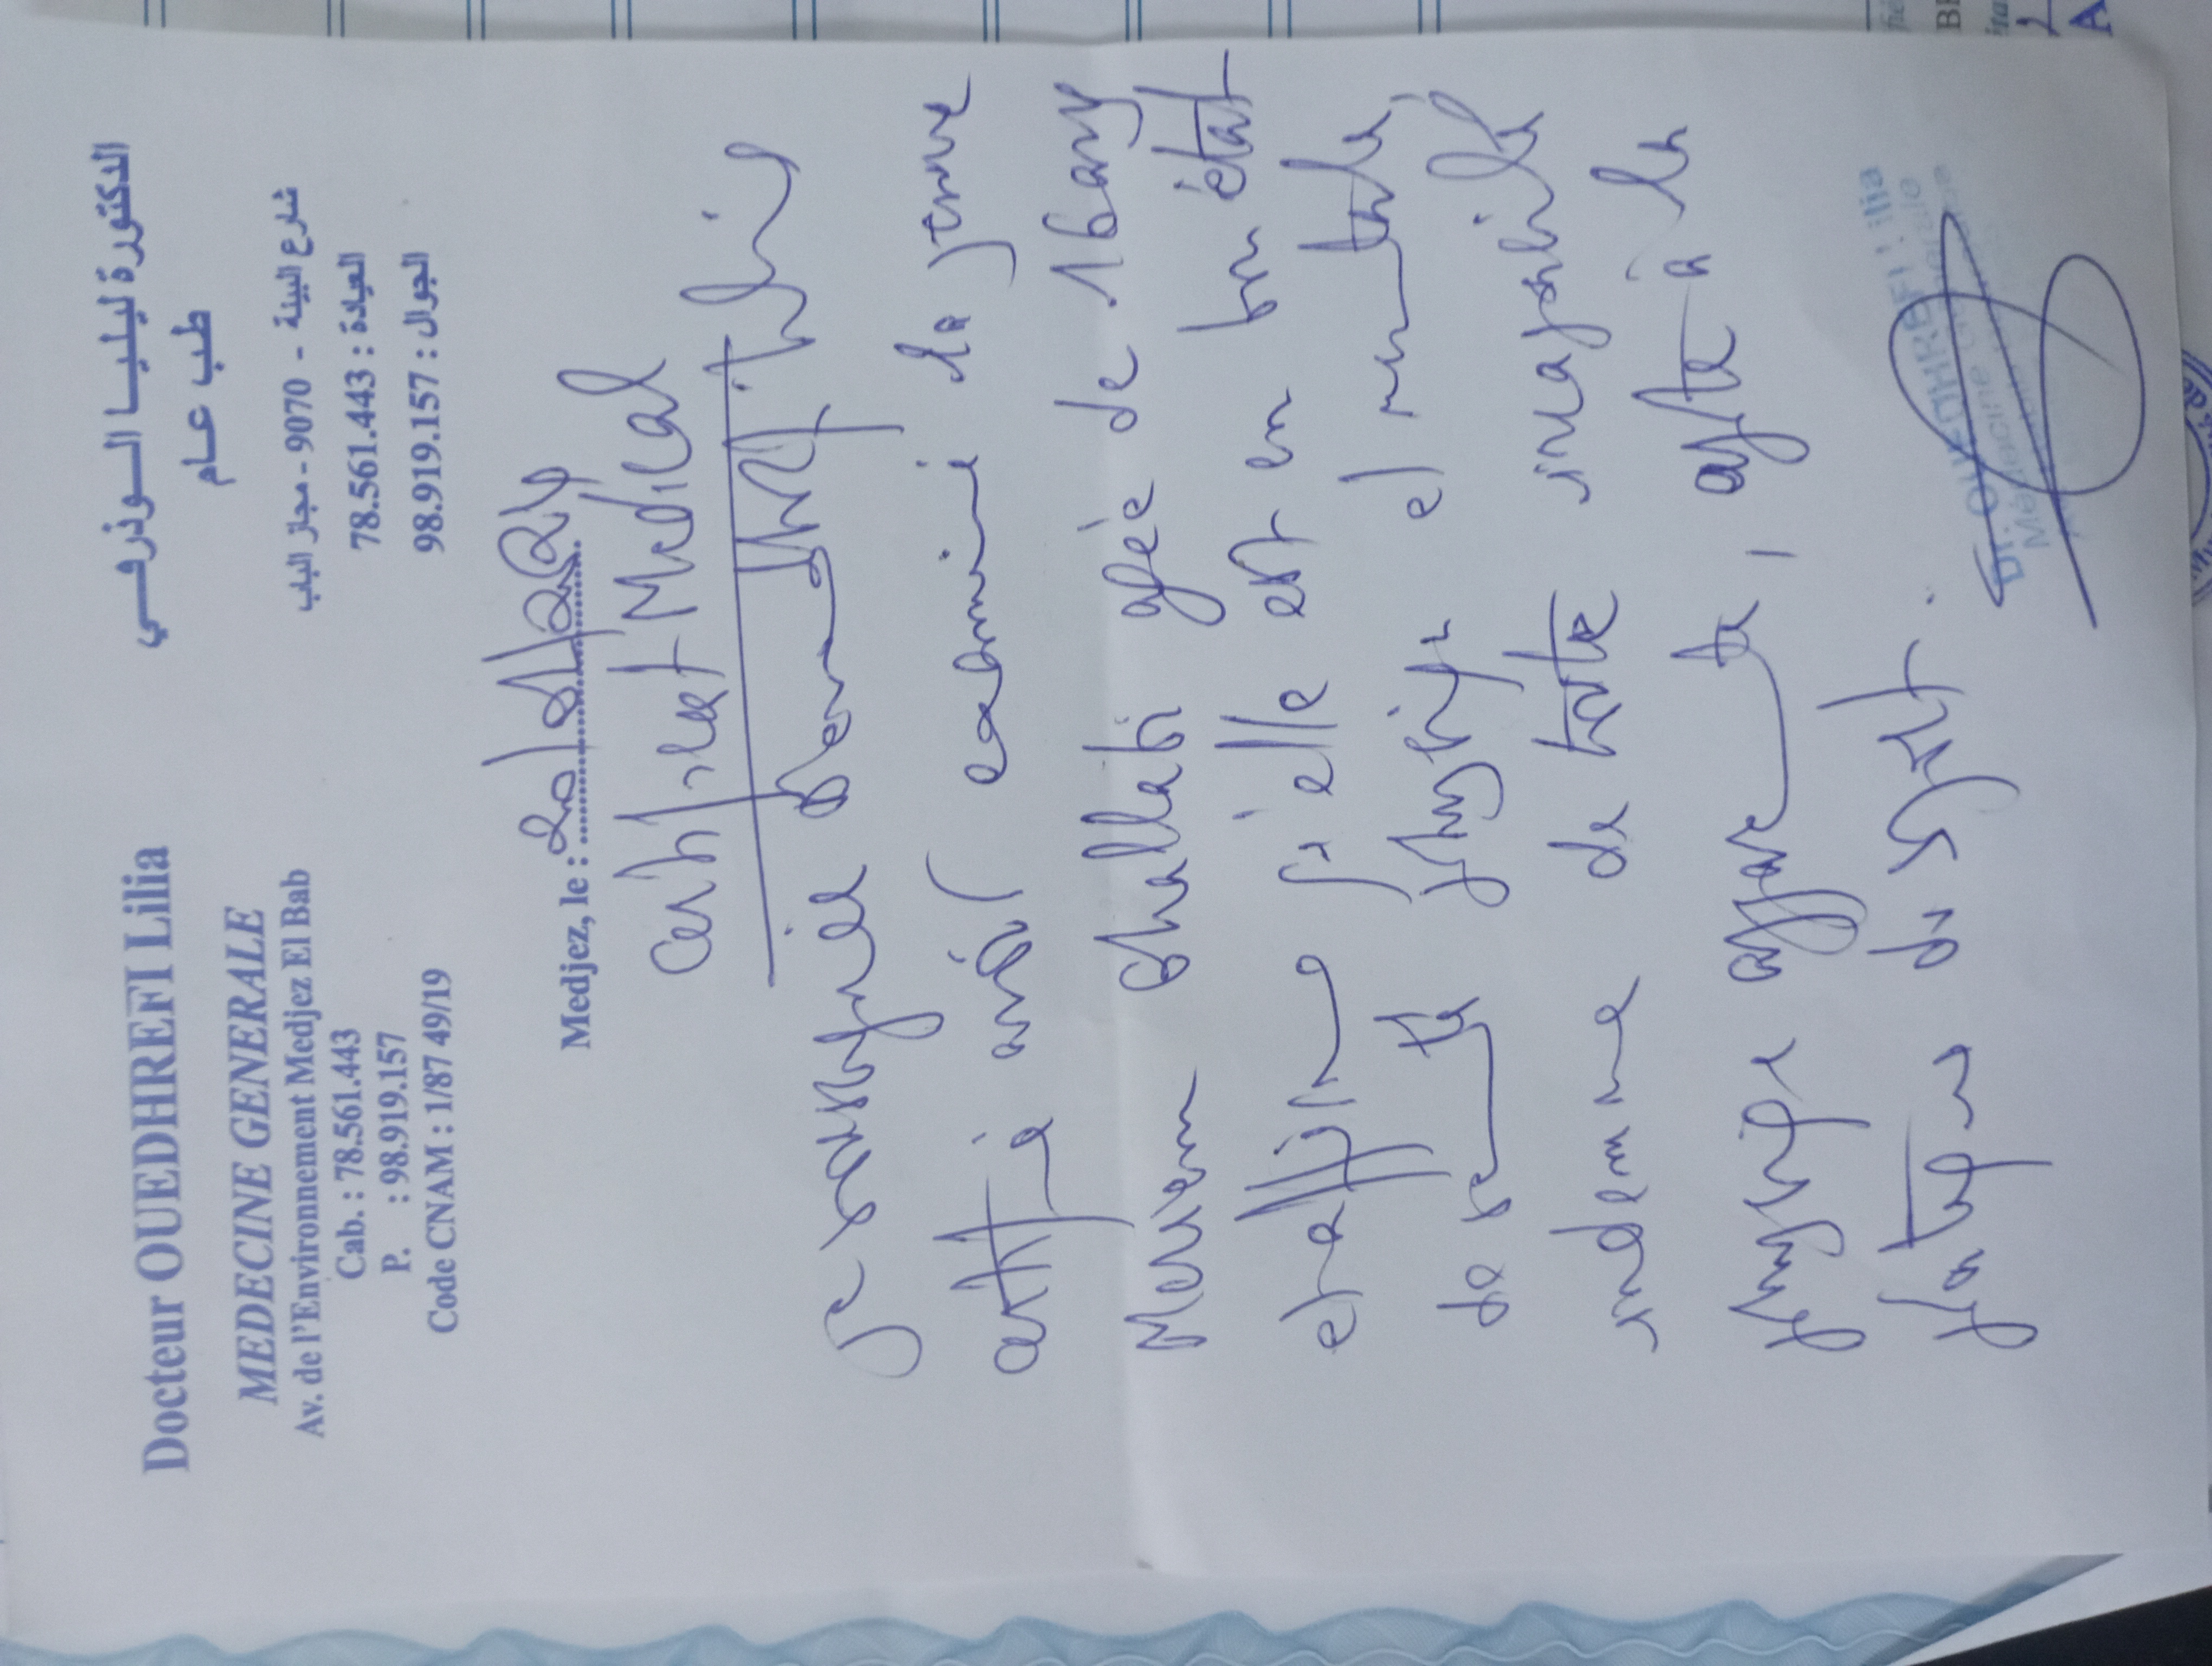 Docteur OUEDHREFI Lilia
MEDECINE GENERALE
Av. de l'Environnement Medjez El Bab
Cab. : 78.561.443
P. : 98.919.157
Code CNAM : 1/87 49/19
الدكتورة ليليا الوذرفي
طب عام
شارع البيئة - 9070 - مجاز الباب
العيادة : 78.561.443
الجوال : 98.919.157
Medjez, le :
Certificat Medical
Je soussignée
atteste avoir examiné la jeune
Meriem Challakhi agée de 16 ans
et affirme qu'elle est en bon état
de santé physique et mentale,
indemne de toute incapacité
physique apparente, apte à la
pratique du sport.
Dr. OUEDHREFI Lilia